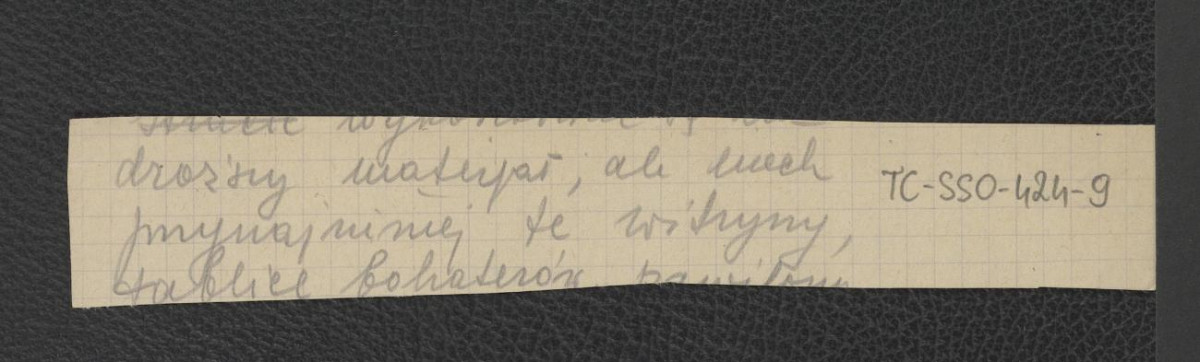 droższy materjał, ale niech
przynajmniej te witryny,
tablice bohaterów
TC-SSO-424-9